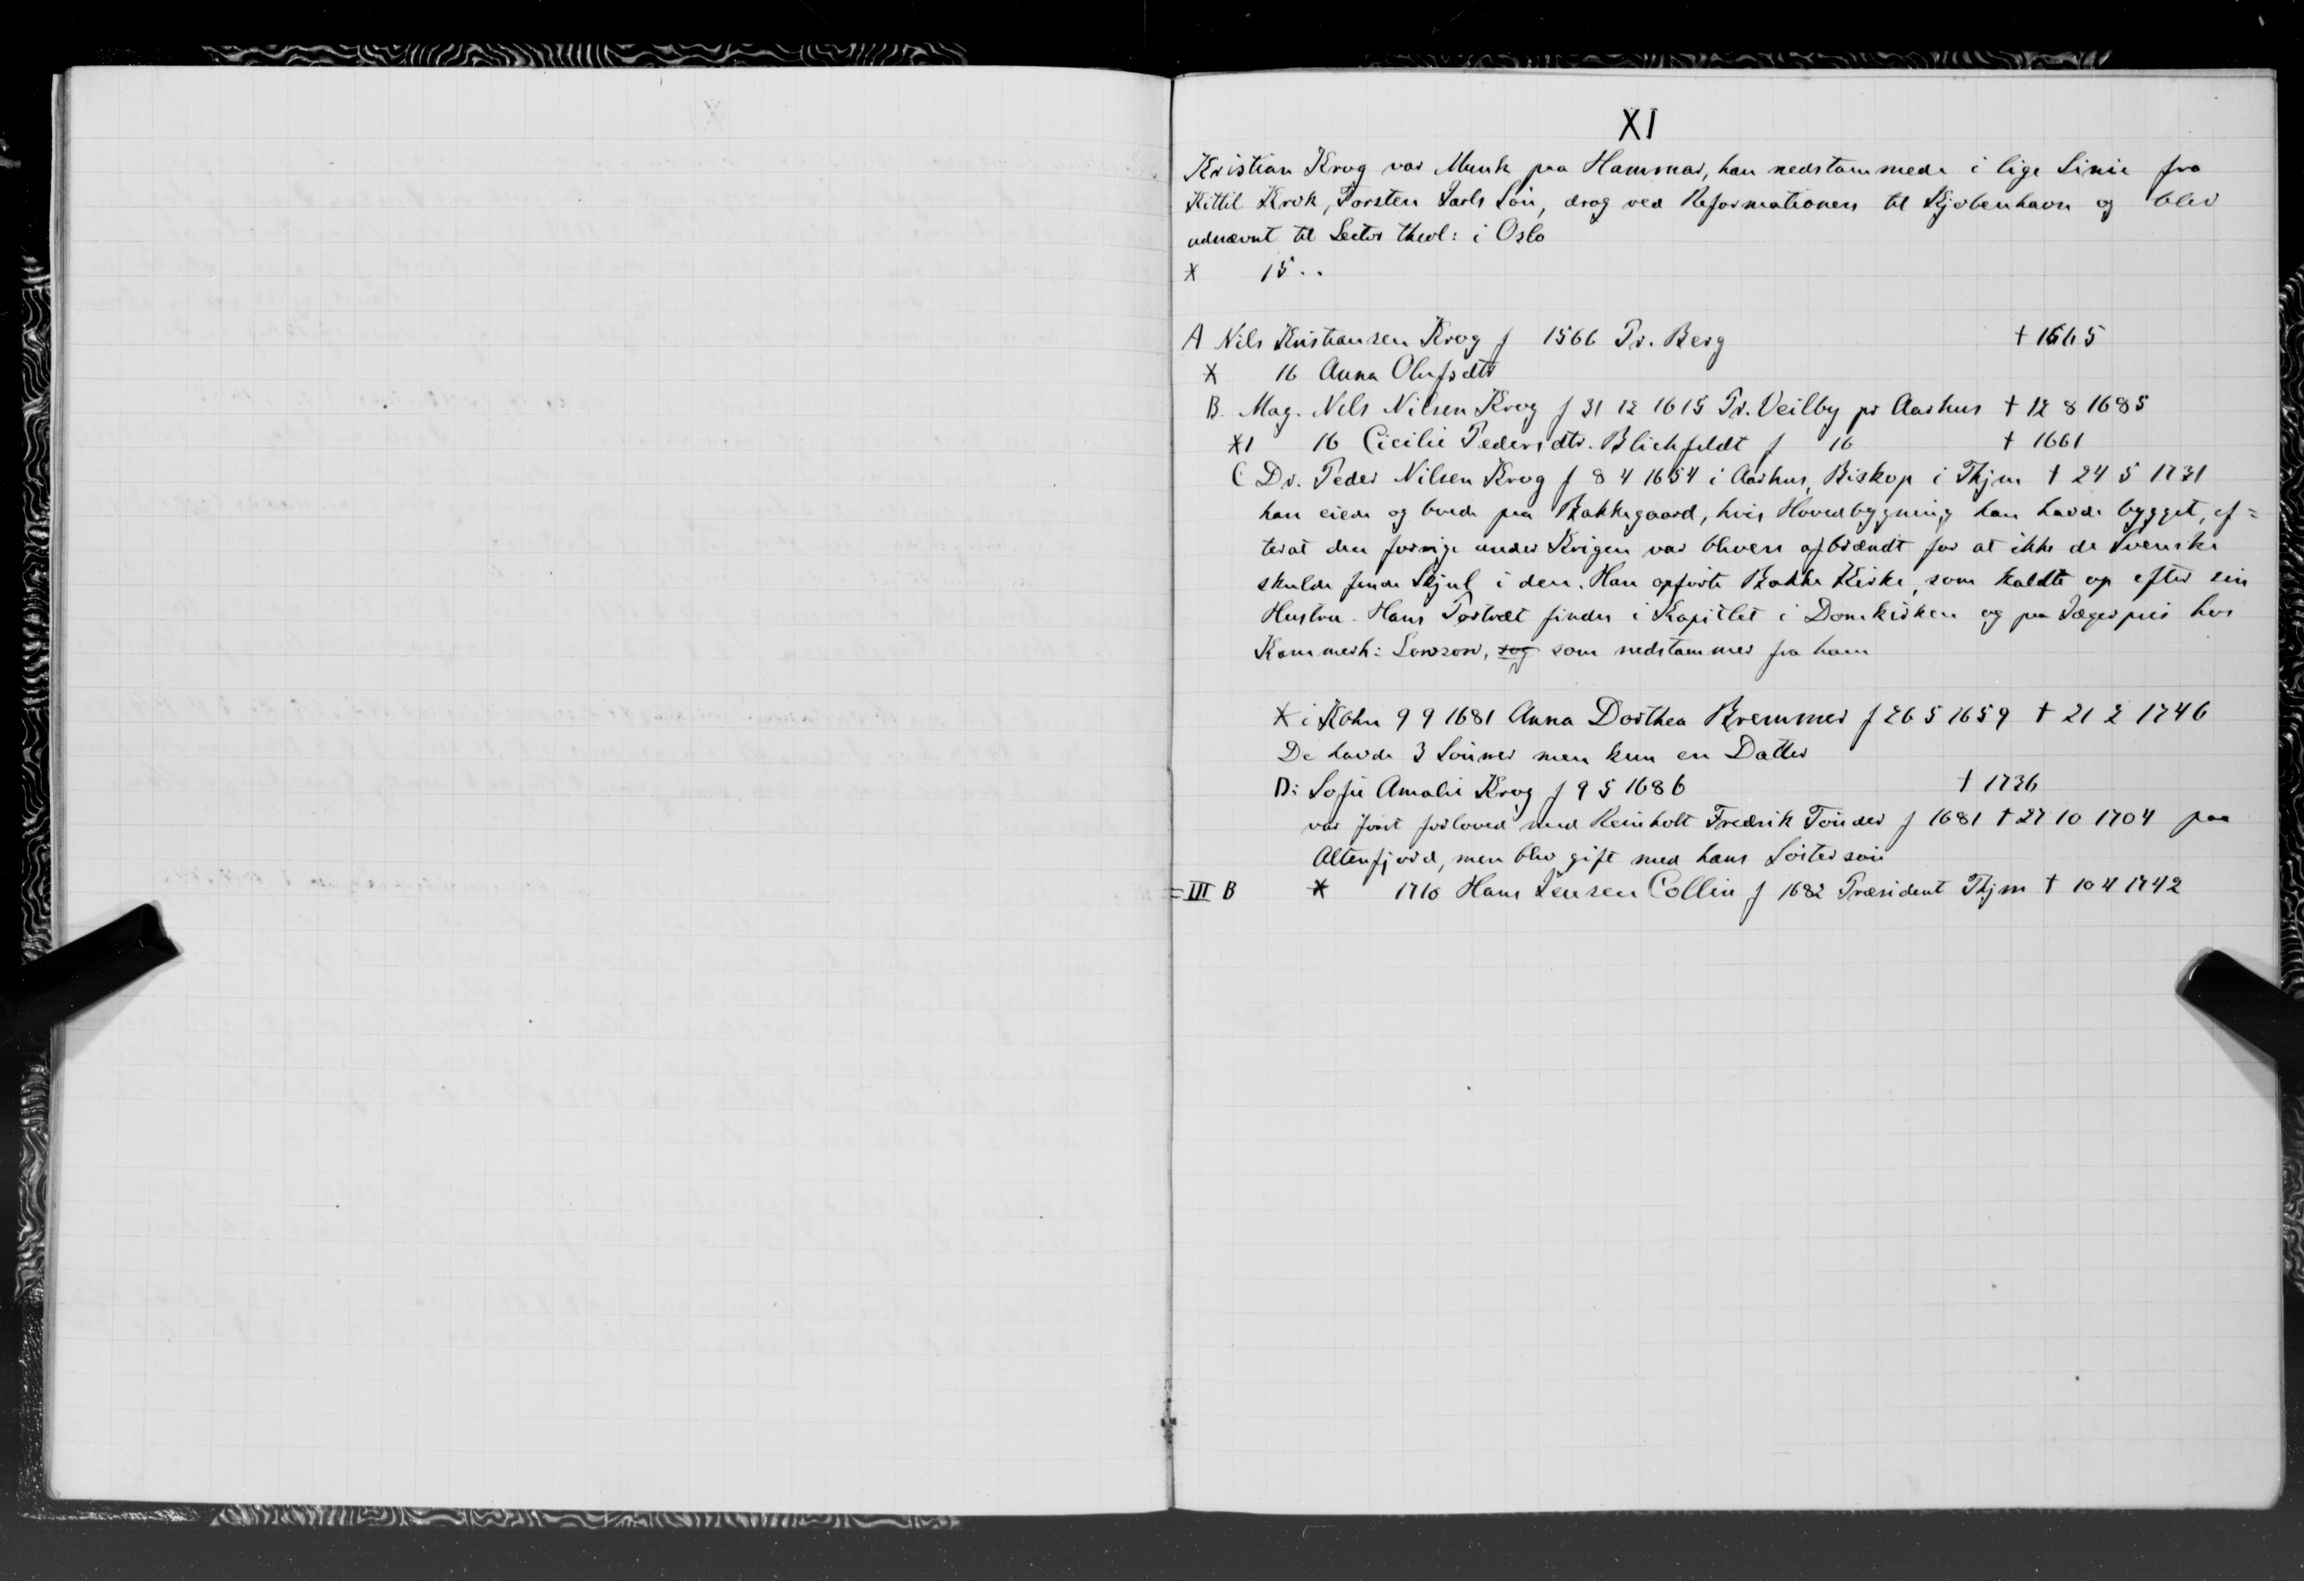 XI
Kristian Krog var Munk paa Hammar, han nedstammede i lige Linie fra
Kittil Krok, Torsten Jarls Søn, drog ved Reformationen til Kjøbenhavn og blev
udnævnt til Lector theol: i Oslo
X 15..
A Nils Kristiansen Krog f 1566 Pr. Berg † 1665
X 16 Anna Olufsdtr
B. Mag. Nels Nilsen Krog f 31 12 1615 Pr. Veilby pr Aarhus † 12 8 1685
X1 16 Cicilie Pedersdtr. Blichfeldt f 16 † 1661
C Dr. Peder Nilsen Krog f 8 4 1654 i Aarhus, Biskop i Thjm † 24 5 1731
han eiede og boede paa Bakkegaard, hvis Hovedbygning han havde bygget, ef=
terat den forrige under Krigen var bleven afbrændt for at ikke de Svenske
skulde finde Skjul i den. Han opførte Bakke Kirke, som kaldte op efter sin
Hustru. Hans Portræt findes i Kapitlet i Domkirken og paa Jægerpris hos
Kammerh: som nedstammer fra ham
X i Kbhn 9 9 1681 Anna Dorthea Bremmer f 26 5 1659 † 21 2 1746
De havde 3 Sønner men kun en Datter
D: Sofie Amalie Krog f 9 5 1686 † 1736
var først forlovet med Reinholt Fredrik Tønder f 1681 † 27 10 1704 paa
Altenfjord, men blev gift med hans Søstersøn
= III B X 1710 Hans Jensen Collin f 1682 Præsident Thjm † 10 4 1742